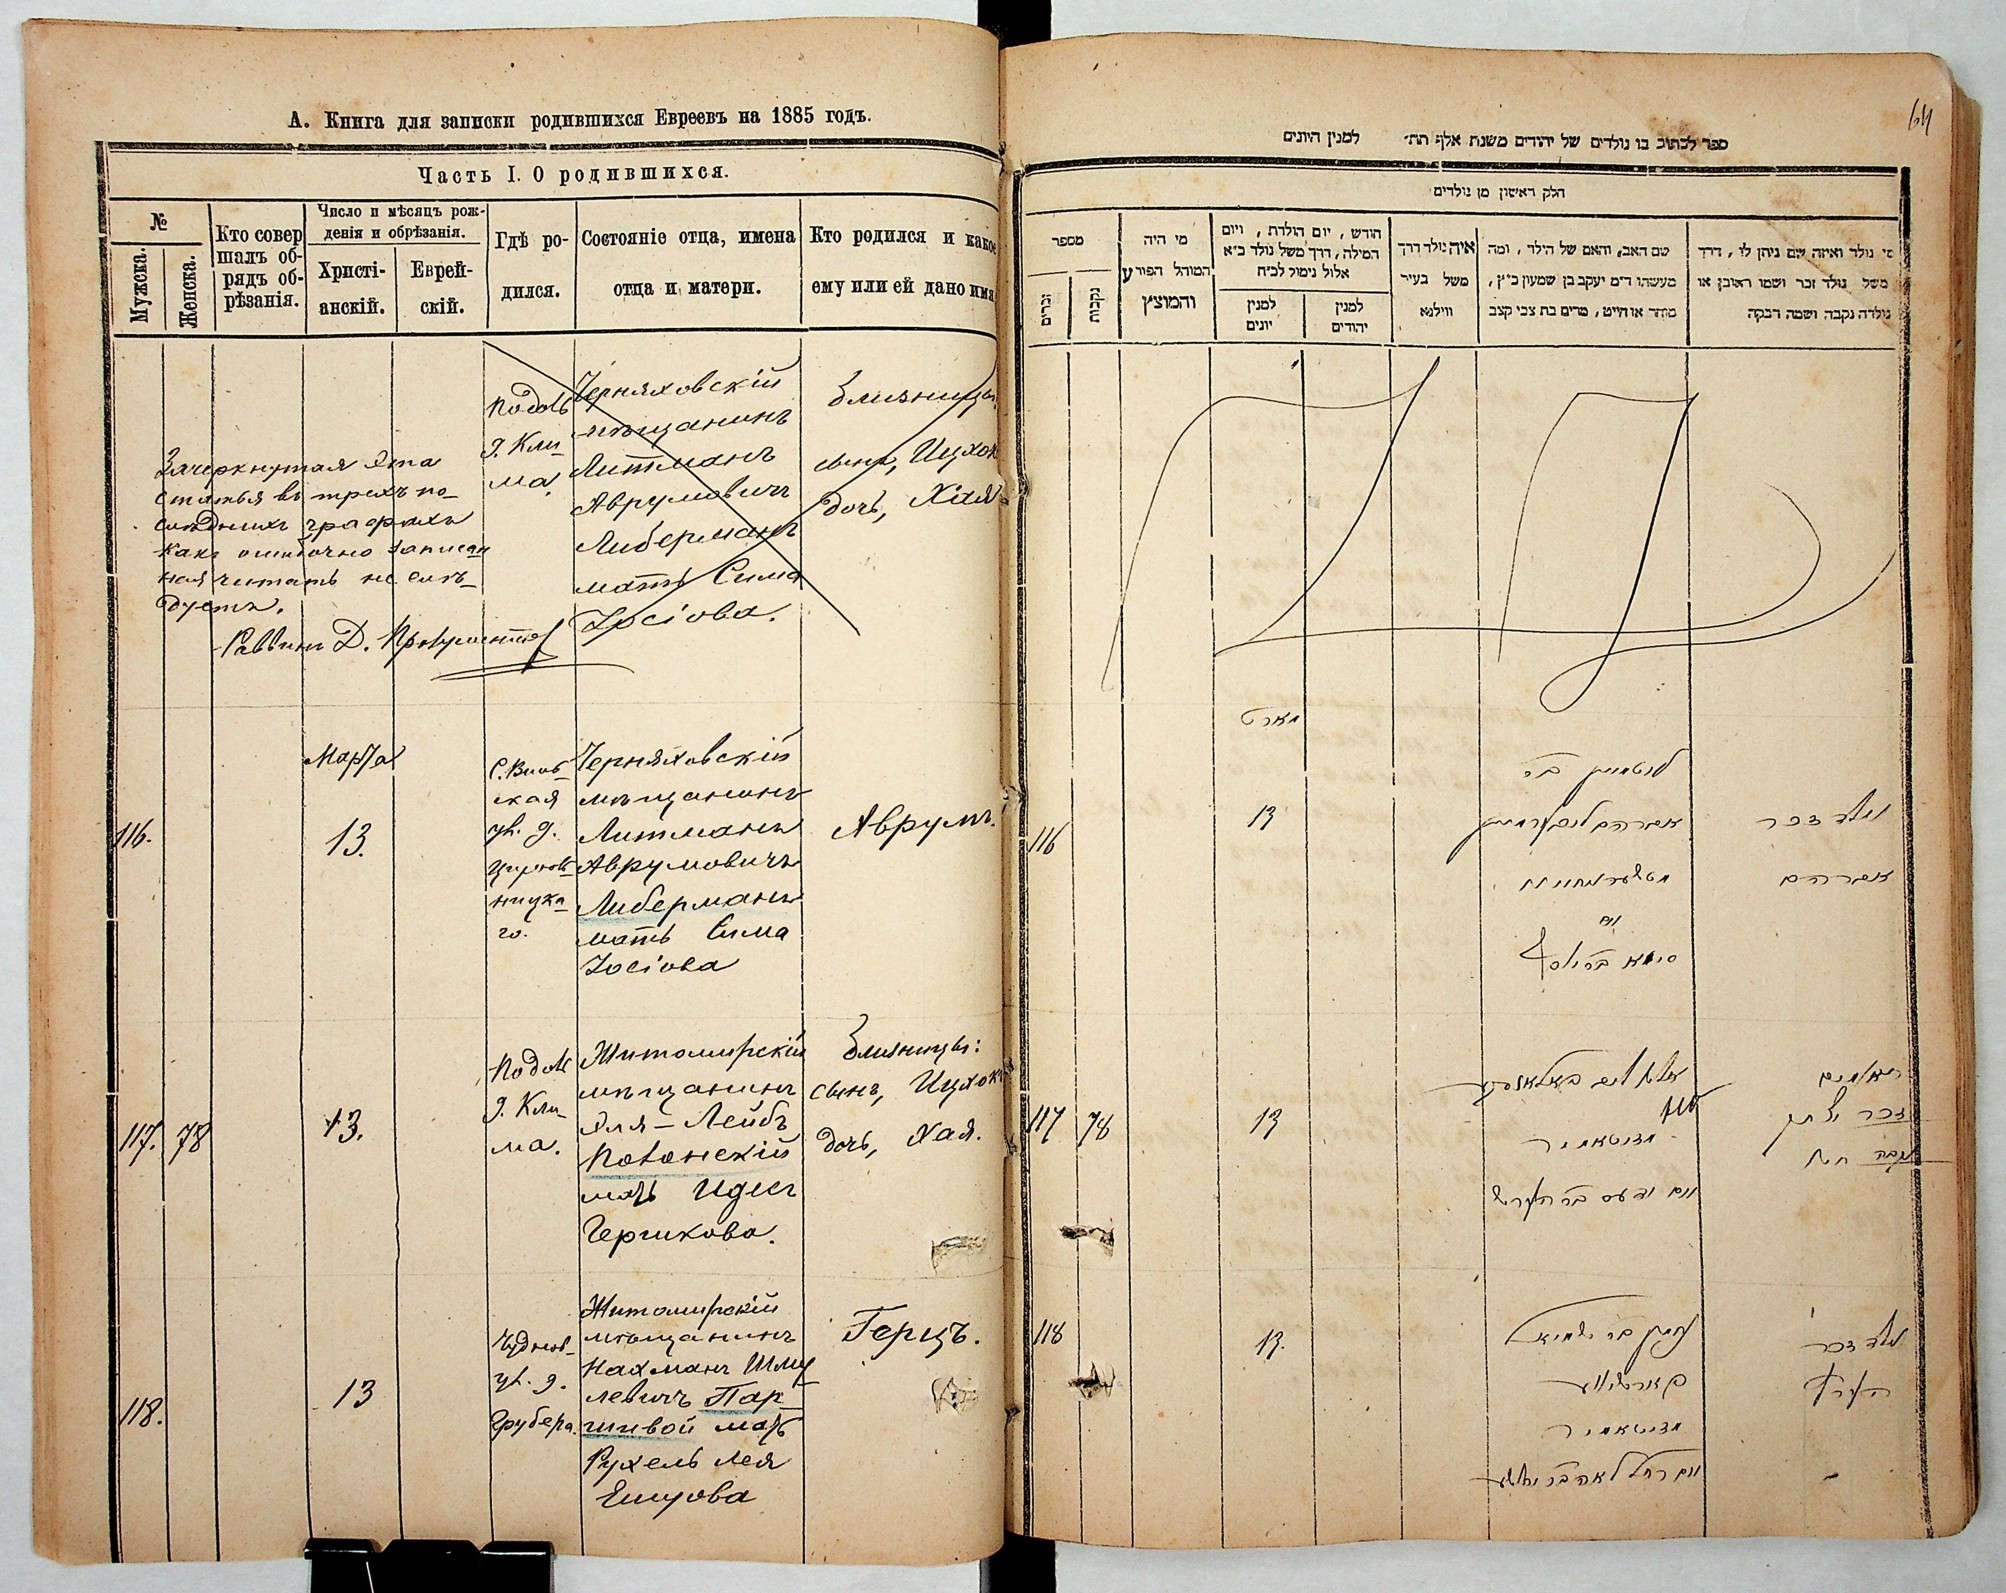 А. Книга для записки родившихся Евреевъ на 1885 годъ.
Часть I. О родившихся.
№
Мужска.
Женска.
Кто совер
шалъ об-
рядъ об-
рѣзанія.
Число и мѣсяцъ рож-
денія и обрѣзанія.
Христі-
анскій.
Еврей-
скій.
Гдѣ ро-
дился.
Состояніе отца, имена
отца и матери.
Кто родился и какое
ему или ей дано имя
Зачеркнутая эта
статья въ трехъ по-
слѣднихъ графахъ
какъ ошибочно записан
ная читать не слѣ-
дуетъ.
Раввинъ Д.
Подолъ
д. Кли-
ма.
Черняховскій
мѣщанинъ
Литманъ
Аврумовичъ
Либерманъ
мать Сима
Іосіова.
Близницы,
сынъ, Ицхокъ
дочь, Хая
116.
Марта
13.
С. Виль-
ская
ул. д.
го.
Черняховскій
мѣщанинъ
Литманъ
Аврумовичъ
Либерманъ
мать Сима
Іосіова
Аврумъ.
117. 78
13.
Подолъ
д. Кли-
ма.
Житомирскій
мѣщанинъ
Эля-Лейбъ
мать Идесъ
Гершкова.
Близницы:
сынъ, Ицхокъ
дочь, Хая.
118.
13
Чуднов-
ул. д.
Грубера.
Житомирскій
мѣщанинъ
Нахманъ Шму
левичъ Пар-
шивой мать
Рухель Лея
Ешуова
Герцъ.
64
ספר לכתוב בו נולדים של יהודים משנת אלף תת׳ למנין היונים
חלק ראשון מן נולדים
מספר
זכרים
נקבות
מי היה
המוהל הפורע
והמוצץ
חודש, יום הולדת, ויום
המילה, דרך משל נולד כ״א
אלול נימול לכ״ח
למנין
יונים
למנין
יהודים
איה נולד דרך
משל בעיר
ווילנא
שם האב, והאם של הילד, ומה
מעשהו ד״מ יעקב בן שמעון כ״ץ,
סוחר או חייט, מרים בת צבי קצב
מי נולד ואיזה שם ניתן לו, דרך
משל נולד זכר ושמו ראובן או
נולדה נקבה ושמה רבקה
מארט
116
13
ליטמאן בר
אברהם ליבערמאן
ואם
סימא בר יוסף
נולד זכר
אברהם
117 78
13
זיטאמיר
ואם אידעס בר הערש
תאומים
זכר יצחק
נקבה חיה
118
13.
נחמן בר שמואל
פארשיווע
זיטאמיר
ואם רחל לאה בר יהושע
נולד זכר
הערץ